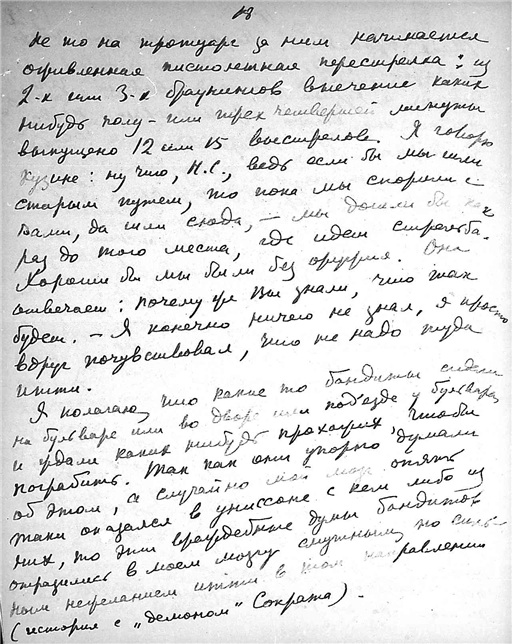 18
не то на тротуаре за ним начинается
оживленная пистолетная перестрелка: из
2-х или 3-х браунингов в течение каких
нибудь полу- или трех четвертей минуты
выпущено 12 или 15 выстрелов. Я говорю
кузине: ну что, Н.С., ведь если бы мы шли
старым путем, то пока мы спорили с
Вами, да шли сюда, – мы дошли бы как
раз до того места, где идет стрельба.
Хороши бы мы были без оружия. Она
отвечает: почему же Вы знали, что так
будет. – Я конечно ничего не знал, я просто
вдруг почувствовал, что не надо туда
итти.
Я полагаю, что какие то бандиты сидели
на бульваре или во дворе или под'езде у бульвара,
и ждали каких нибудь прохожих, чтобы
пограбить. Так как они упорно думали
об этом, а случайно мой мозг опять
таки оказался в униссоне с кем либо из
них, то эти враждебные думы бандитов
отразились в моем мозгу смутным, но силь-
ным нежеланием итти в том направлении
(история с „демоном" Сократа).